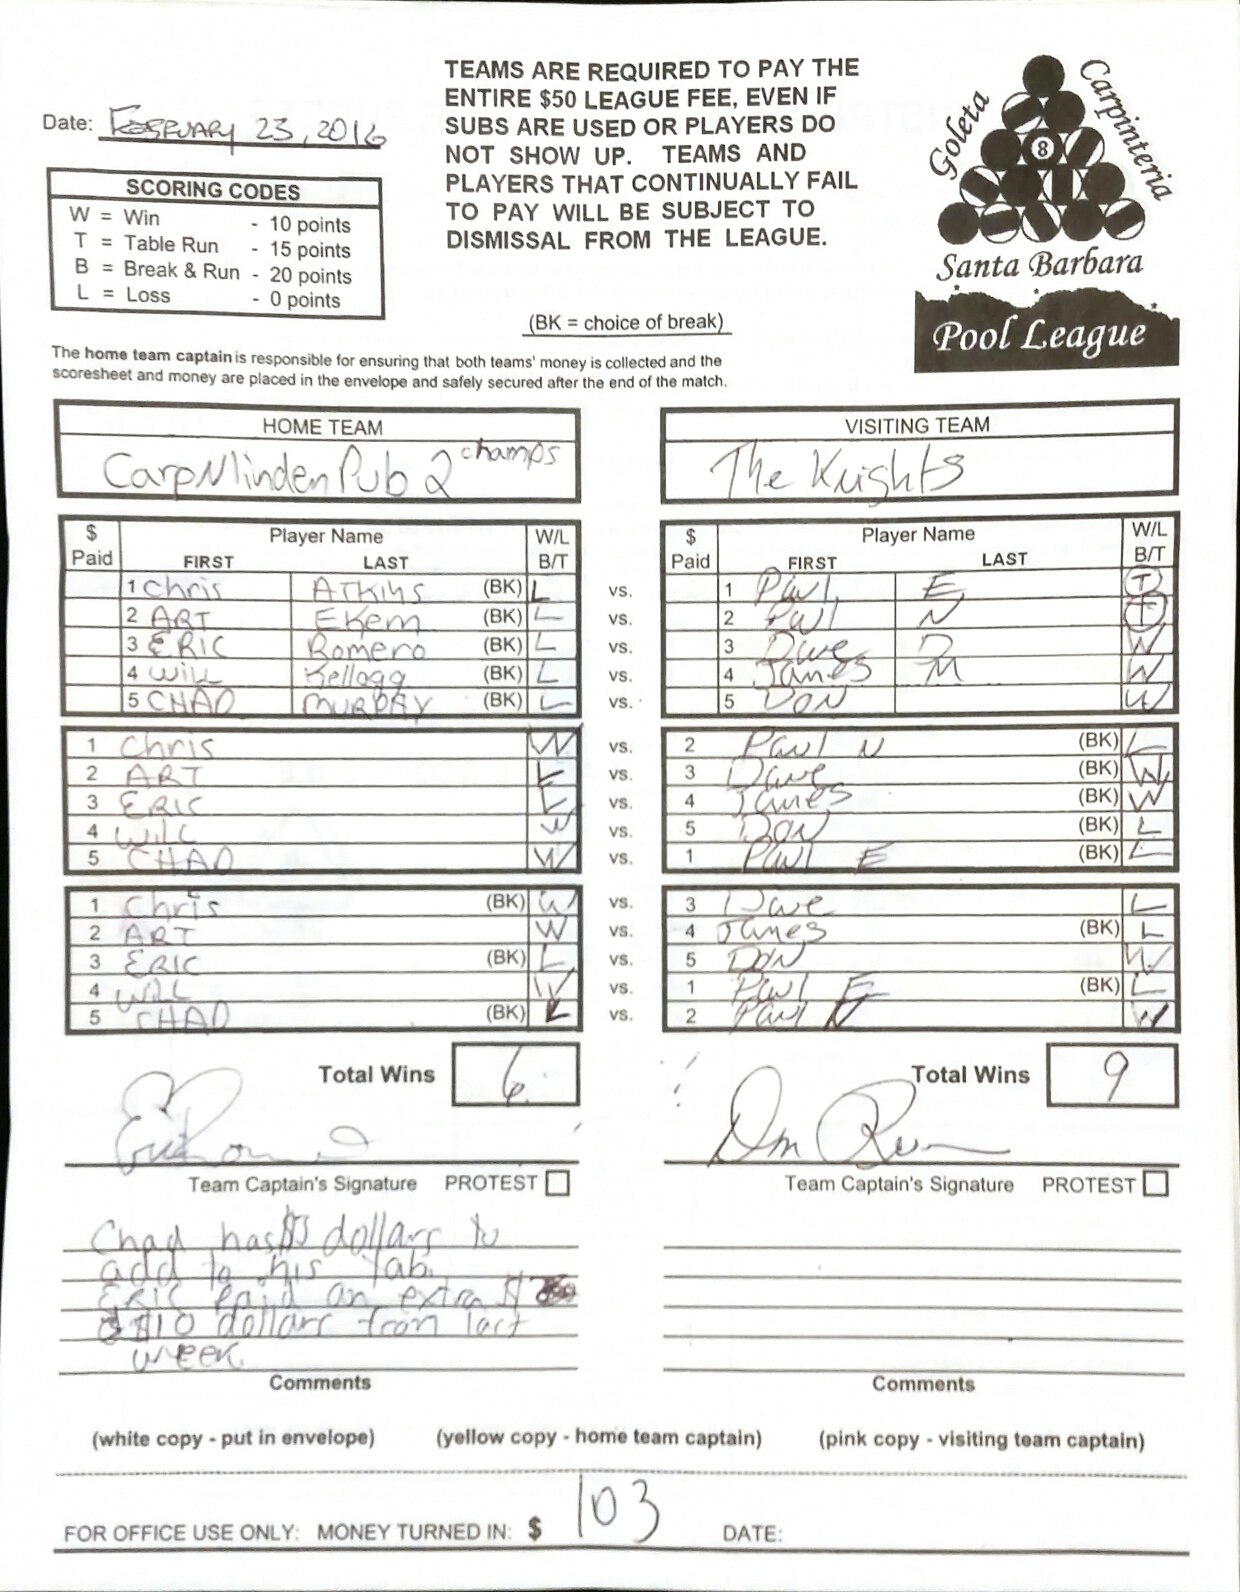 TEAMS ARE REQUIRED TO PAY THE
ENTIRE $50 LEAGUE FEE, EVEN IF
SUBS ARE USED OR PLAYERS DO
NOT SHOW UP. TEAMS AND
PLAYERS THAT CONTINUALLY FAIL
TO PAY WILL BE SUBJECT TO
DISMISSAL FROM THE LEAGUE.
Date: FEBRUARY 23, 2016
SCORING CODES
W = Win - 10 points
T = Table Run - 15 points
B = Break & Run - 20 points
L = Loss - 0 points
Goleta
Carpinteria
8
Santa Barbara
Pool League
(BK = choice of break)
The home team captain is responsible for ensuring that both teams' money is collected and the
scoresheet and money are placed in the envelope and safely secured after the end of the match.
HOME TEAM VISITING TEAM
Carp Minden Pub 2 champs The Knights
$ Player Name W/L $ Player Name W/L
Paid FIRST LAST B/T Paid FIRST LAST B/T
1 Chris ATKINS (BK) L vs. 1 Paul E T
2 ART EKem (BK) L vs. 2 Paul N T
3 ERIC Romero (BK) L vs. 3 Dave D W
4 WILL Kellogg (BK) L vs. 4 James M W
5 CHAD MURPAY (BK) L vs. 5 DON W
1 Chris W vs. 2 Paul N (BK) L
2 ART L vs. 3 Dave (BK) W
3 ERIC L vs. 4 James (BK) W
4 WILL W vs. 5 DON (BK) L
5 CHAD W vs. 1 Paul E (BK) L
1 Chris (BK) W vs. 3 Dave L
2 ART W vs. 4 James (BK) L
3 ERIC (BK) L vs. 5 DON W
4 WILL W vs. 1 Paul E (BK) L
5 CHAD (BK) L vs. 2 Paul N W
Total Wins 6 Total Wins 9
Team Captain's Signature PROTEST Team Captain's Signature PROTEST
Chad has $3 dollars to
add to his tab.
ERIC Paid an extra $
$10 dollars from last
week
Comments Comments
(white copy - put in envelope) (yellow copy - home team captain) (pink copy - visiting team captain)
FOR OFFICE USE ONLY: MONEY TURNED IN: $ 103 DATE: